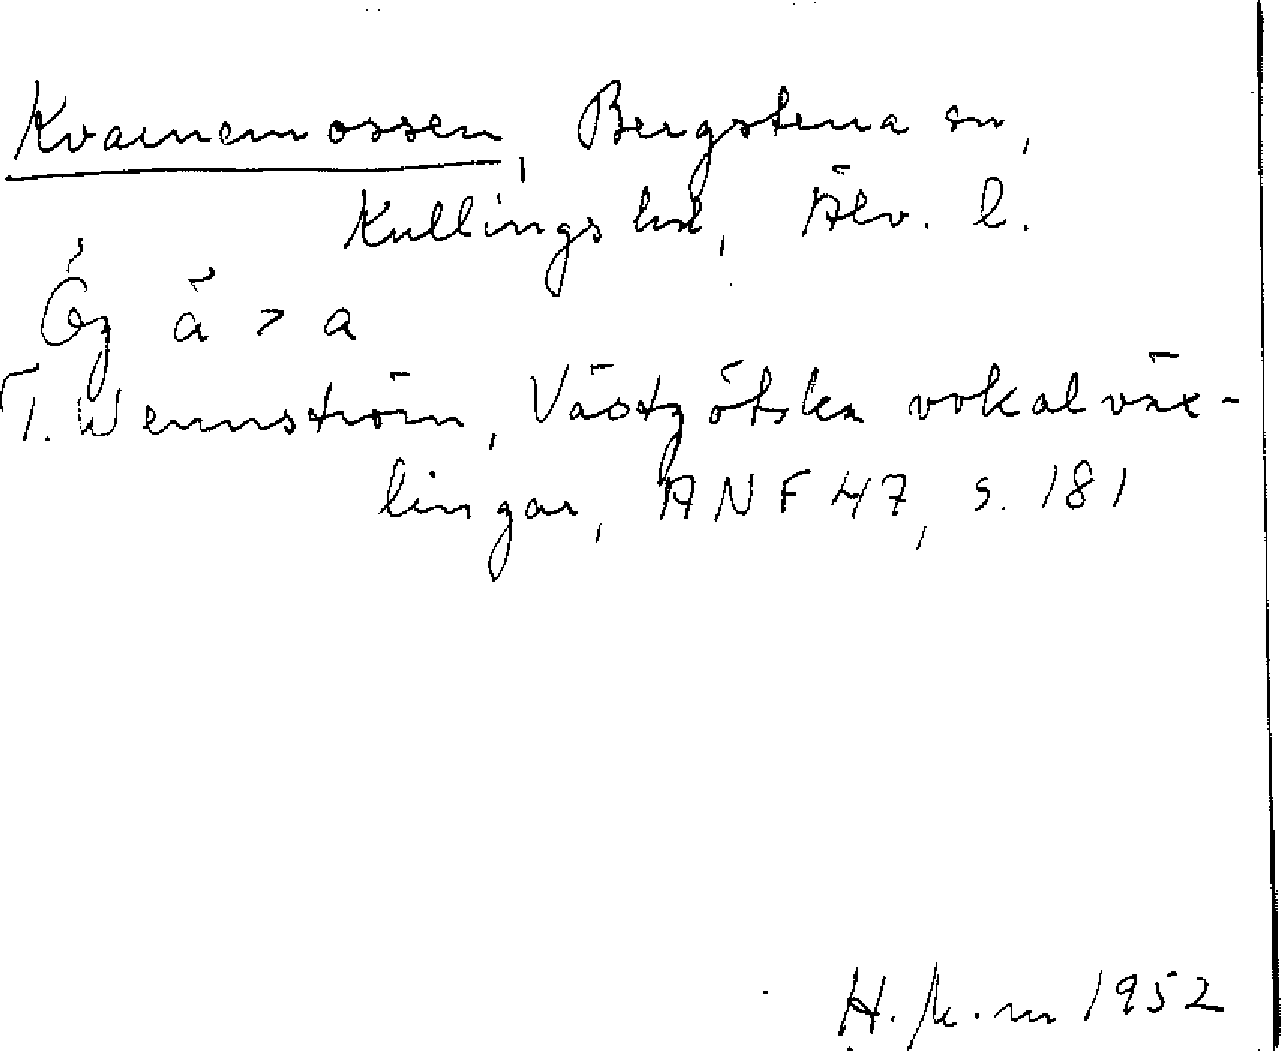 Kvarnemossen, Bergstena sn,
Kullings hd, Älv. l.
Ög ä > a
T. Wennström, Västgötska vokalväx-
lingar, ANF 47, s. 181
1952